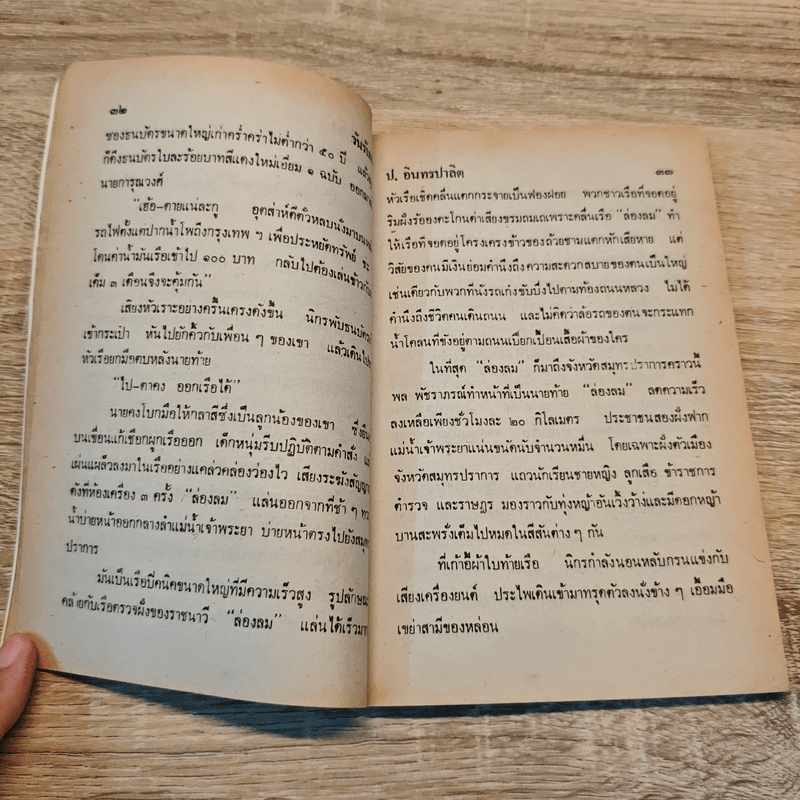 ๓๒
ซองธนบัตรขนาดใหญ่เก่าคร่ำคร่าไม่ต่ำกว่า ๕๐ ปี แล้ว
ก็ดึงธนบัตรใบละร้อยบาทสีแดงใหม่เอี่ยม ๑ ฉบับ
นายการุณวงศ์
"เฮ้อ-ตายแน่ละกู อุตส่าห์ตีตั๋วหลบนั่งมาบน
รถไฟตั้งแต่ปากน้ำโพถึงกรุงเทพ ฯ เพื่อประหยัดทรัพย์
โดนค่าน้ำมันเรือเข้าไป ๑๐๐ บาท กลับไปต้องเล่นข้าว
เต็ม ๓ เดือนจึงจะคุ้มกัน"
เสียงหัวเราะอย่างครื้นเครงดังขึ้น นิกรพับธนบัตร
เข้ากระเป๋า หันไปยักคิ้วกับเพื่อน ๆ ของเขา แล้วเดินไป
หัวเรือยกมือตบหลังนายท้าย
"ไป-ตาคง ออกเรือได้"
นายคงโบกมือให้กลาสีซึ่งเป็นลูกน้องของเขา ซึ่งยืน
บนเขื่อนแก้เชือกผูกเรือออก เด็กหนุ่มรีบปฏิบัติตามคำสั่ง
เผ่นแผล็วลงมาในเรืออย่างแคล่วคล่องว่องไว เสียงระฆังสัญญาณ
ดังที่ห้องเครื่อง ๓ ครั้ง "ล่องลม" แล่นออกจากที่ช้า ๆ
น้ำบ่ายหน้าออกกลางลำแม่น้ำเจ้าพระยา บ่ายหน้าตรงไปยังสมุทร
ปราการ
มันเป็นเรือปิคนิคขนาดใหญ่ที่มีความเร็วสูง รูปลักษณะ
คล้ายกับเรือตรวจฝั่งของราชนาวี "ล่องลม" แล่นได้เร็วมาก
ป. อินทรปาลิต ๓๓
หัวเรือเชิดคลื่นแตกกระจายเป็นฟองฝอย พวกชาวเรือที่จอดอยู่
ริมฝั่งร้องตะโกนด่าเสียงขรมถมเถเพราะคลื่นเรือ "ล่องลม" ทำ
ให้เรือที่จอดอยู่โครงเครงข้าวของถ้วยชามแตกหักเสียหาย แต่
วิสัยของคนมีเงินย่อมคำนึงถึงความสะดวกสบายของตนเป็นใหญ่
เช่นเดียวกับพวกที่นั่งรถเก๋งขับบึ่งไปตามท้องถนนหลวง ไม่ได้
คำนึงถึงชีวิตคนเดินถนน และไม่คิดว่าล้อรถของตนจะกระแทก
น้ำโคลนที่ขังอยู่ตามถนนเปียกเปื้อนเสื้อผ้าของใคร
ในที่สุด "ล่องลม" ก็มาถึงจังหวัดสมุทรปราการคราวนี้
พล พัชราภรณ์ทำหน้าที่เป็นนายท้าย "ล่องลม" ลดความเร็ว
ลงเหลือเพียงชั่วโมงละ ๒๐ กิโลเมตร ประชาชนสองฝั่งฟาก
แม่น้ำเจ้าพระยาแน่นขนัดนับจำนวนหมื่น โดยเฉพาะฝั่งตัวเมือง
จังหวัดสมุทรปราการ แถวนักเรียนชายหญิง ลูกเสือ ข้าราชการ
ตำรวจ และราษฎร มองราวกับทุ่งหญ้าอันเวิ้งว้างและมีดอกหญ้า
บานสะพรั่งเต็มไปหมดในสีสันต่าง ๆ กัน
ที่เก้าอี้ผ้าใบท้ายเรือ นิกรกำลังนอนหลับกรนแข่งกับ
เสียงเครื่องยนต์ ประไพเดินเข้ามาทรุดตัวลงนั่งข้าง ๆ เอื้อมมือ
เขย่าสามีของหล่อน